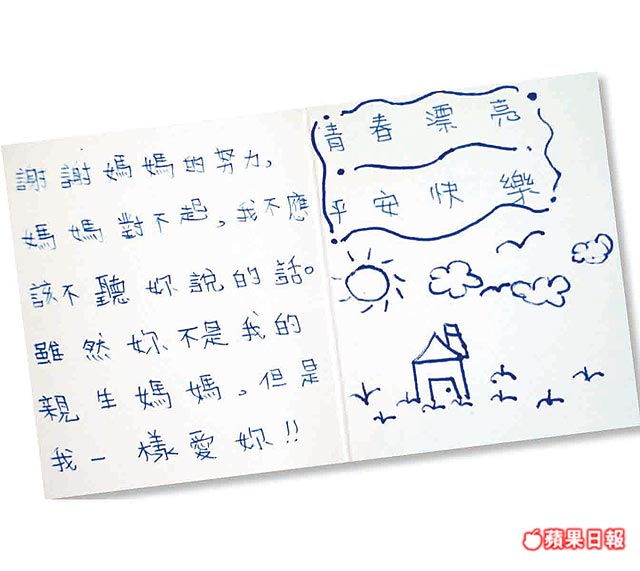 謝謝媽媽的努力,
媽媽對不起,我不應
該不聽妳說的話。
雖然妳不是我的
親生媽媽,但是
我一樣愛妳!!
青春漂亮
平安快樂
蘋果日報